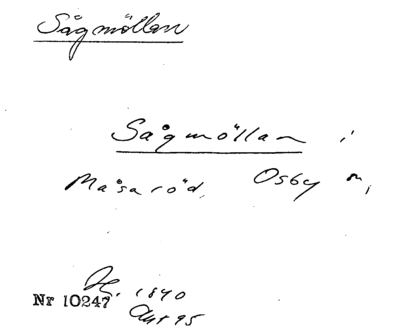 Sågmöllan
Sågmöllan i
Måsaröd, Osby
Nr 10247
1840
95